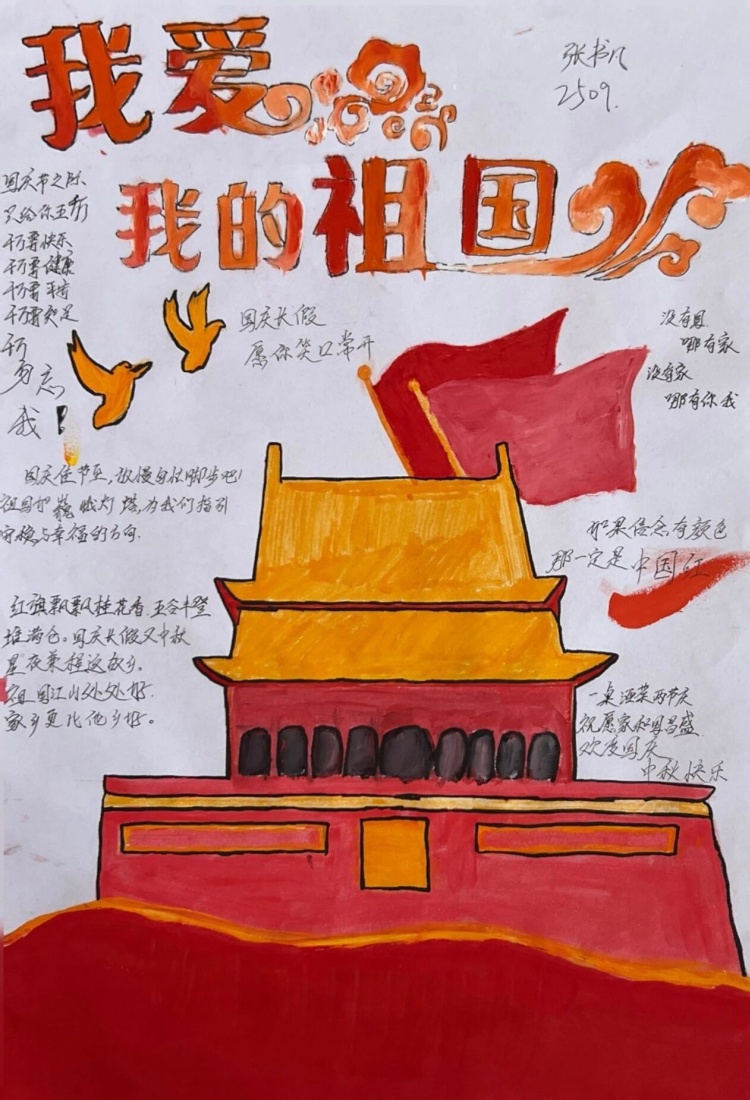 我爱
我的祖国
张书凡
2509.
国庆节之际
只给你五千万
千万要快乐
千万要健康
千万要平安
千万要知足
千万
勿忘
我!
国庆长假
愿你笑口常开
没有国
哪有家
没有家
哪有你我
国庆佳节至,放慢匆忙脚步吧!
祖国如巍峨灯塔,为我们指引
安稳与幸福的方向.
如果信念有颜色
那一定是中国红
红旗飘飘桂花香.五谷丰登
堆满仓。国庆长假又中秋
星夜兼程返故乡。
祖国江山处处好.
家乡更比他乡好。
一桌酒菜两节庆
祝愿家和国昌盛
欢度国庆
中秋快乐